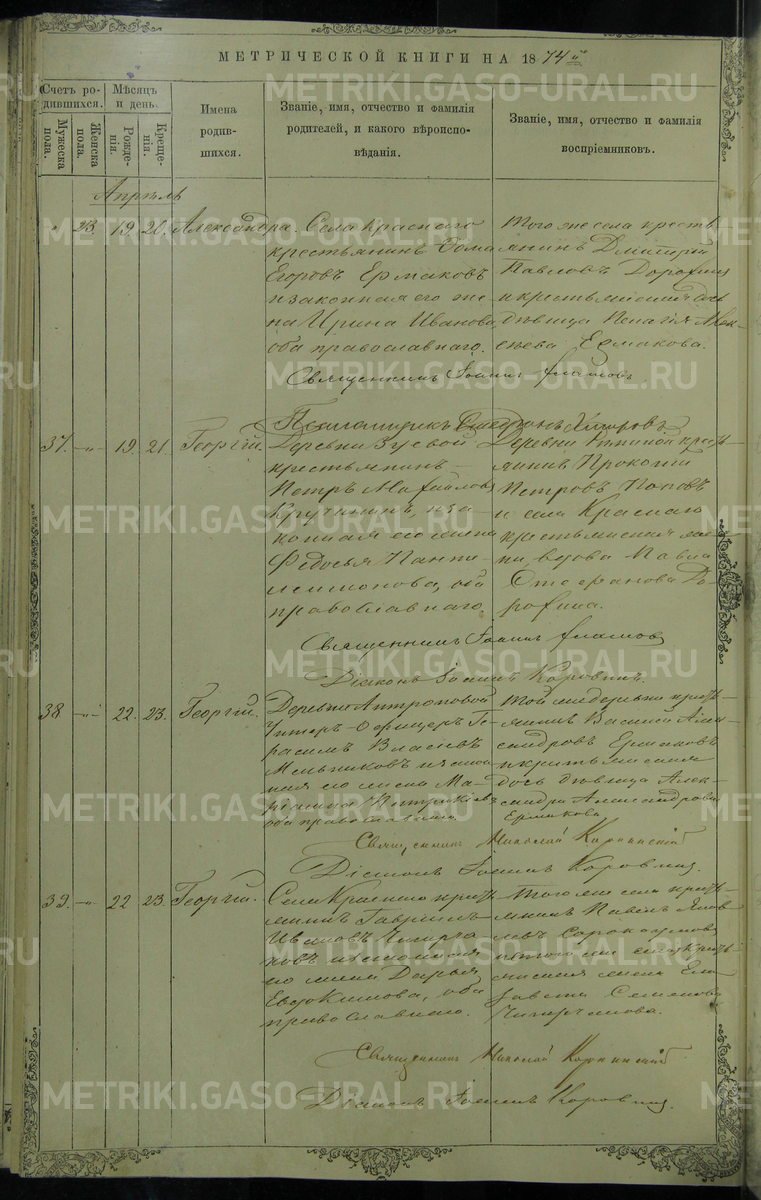 МЕТРИЧЕСКОЙ КНИГИ НА 1874й
Счетъ родившихся.
Мужеска пола.
Женска пола.
Мѣсяцъ и день.
Рожденія.
Крещенія.
Имена родившихся.
Званіе, имя, отчество и фамилія
родителей, и какого вѣроиспо-
вѣданія.
Званіе, имя, отчество и фамилія
воспріемниковъ.
Апрѣль
" 23. 19. 20. Александра.
Села Краснаго
крестьянинъ Фома
Егоровъ Ермаковъ
и законная его же-
на Ирина Иванова,
оба православнаго.
Того же села кресть-
янинъ Димитрій
Павловъ Дорофинъ
и крестьянская дочь
дѣвица Пелагія Алек-
сѣева Ермакова.
Священникъ Іоаннъ
Псаломщикъ
37. -"- 19. 21. Георгій.
Деревни Зуевой
крестьянинъ
Петръ Михайловъ
Кручининъ, и за-
конная его жена
Федосья Панти-
леимонова, оба
православнаго.
Деревни кресть-
янинъ Прокопій
Петровъ Поповъ
и села Краснаго
крестьянская же-
на вдова Павла
Стефанова До-
рофина.
Священникъ Іоаннъ
Діаконъ Іоаннъ Коровинъ.
38 -"- 22. 23. Георгій.
Деревни Антроповой
Унтеръ-Офицеръ Ге-
расимъ Власовъ
Мельниковъ и закон-
ная его жена Ма-
оба православнаго.
Той же деревни кресть-
янинъ Василій Алек-
сандровъ Ермаковъ
и крестьянская
дочь дѣвица Алек-
сандра Александрова
Ермакова.
Священникъ Николай
Діаконъ Іоаннъ Коровинъ.
39. -"- 22 23. Георгій.
Села Краснаго кресть-
янинъ Гавріилъ
Ивановъ Чигирча-
ковъ и законная
его жена Дарья
Евдокимова, оба
православнаго.
Того же села кресть-
янинъ Павелъ Яков-
левъ Сорокоумовъ
и того же села кресть-
янская жена Ели-
завета Семенова
Священникъ Николай
Діаконъ Іоаннъ Коровинъ.
METRIKI.GASO-URAL.RU